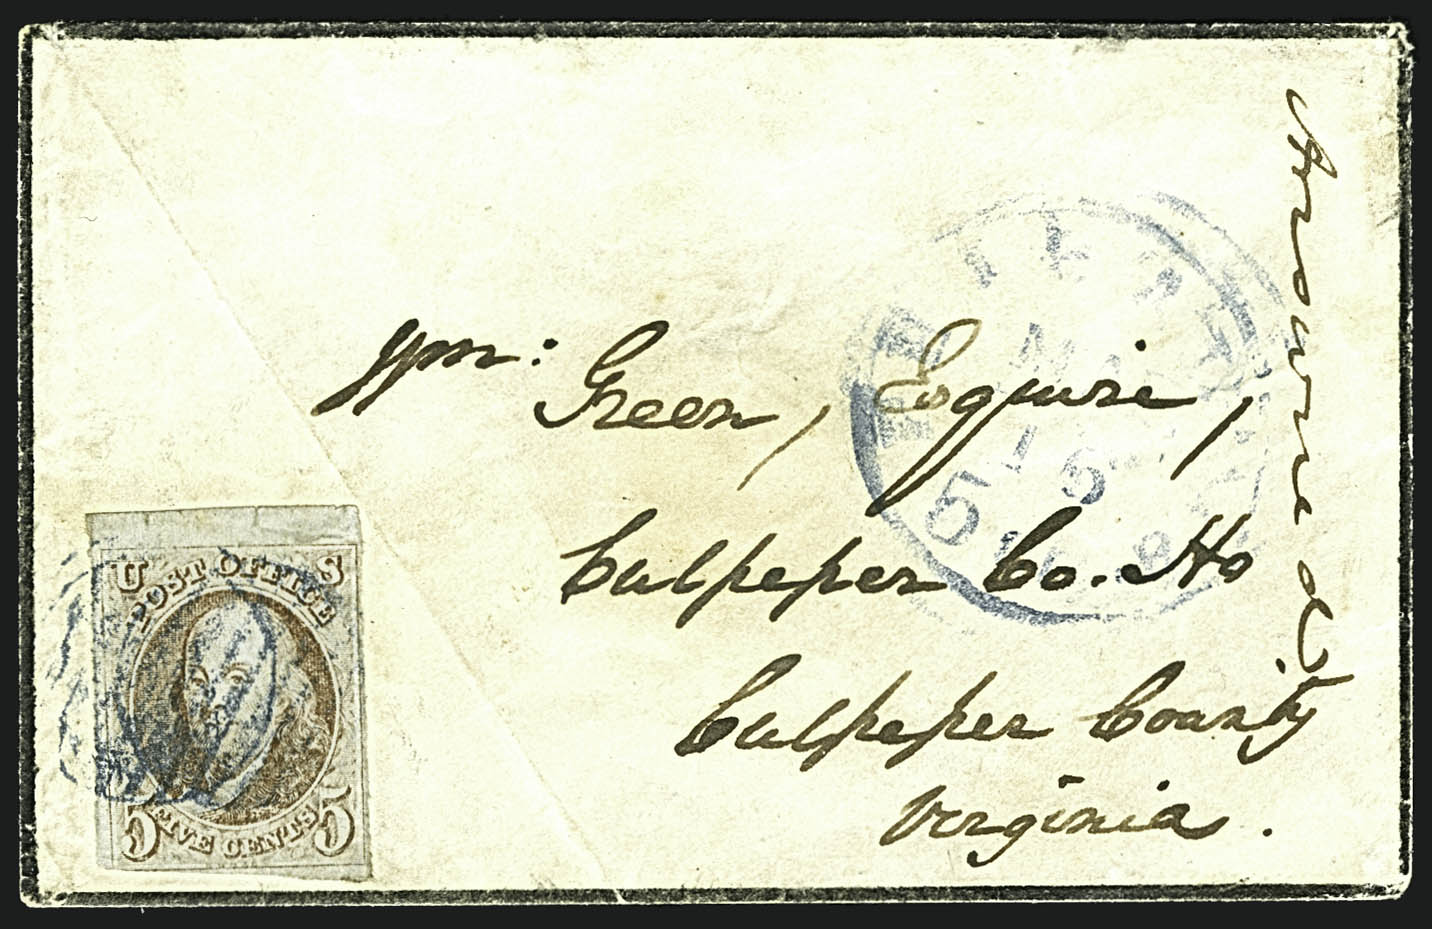 Wm: Green, Esquire,
Culpeper Co. Ho
Culpeper County
Virginia.
U S
POST OFFICE
5 FIVE CENTS 5
15
5